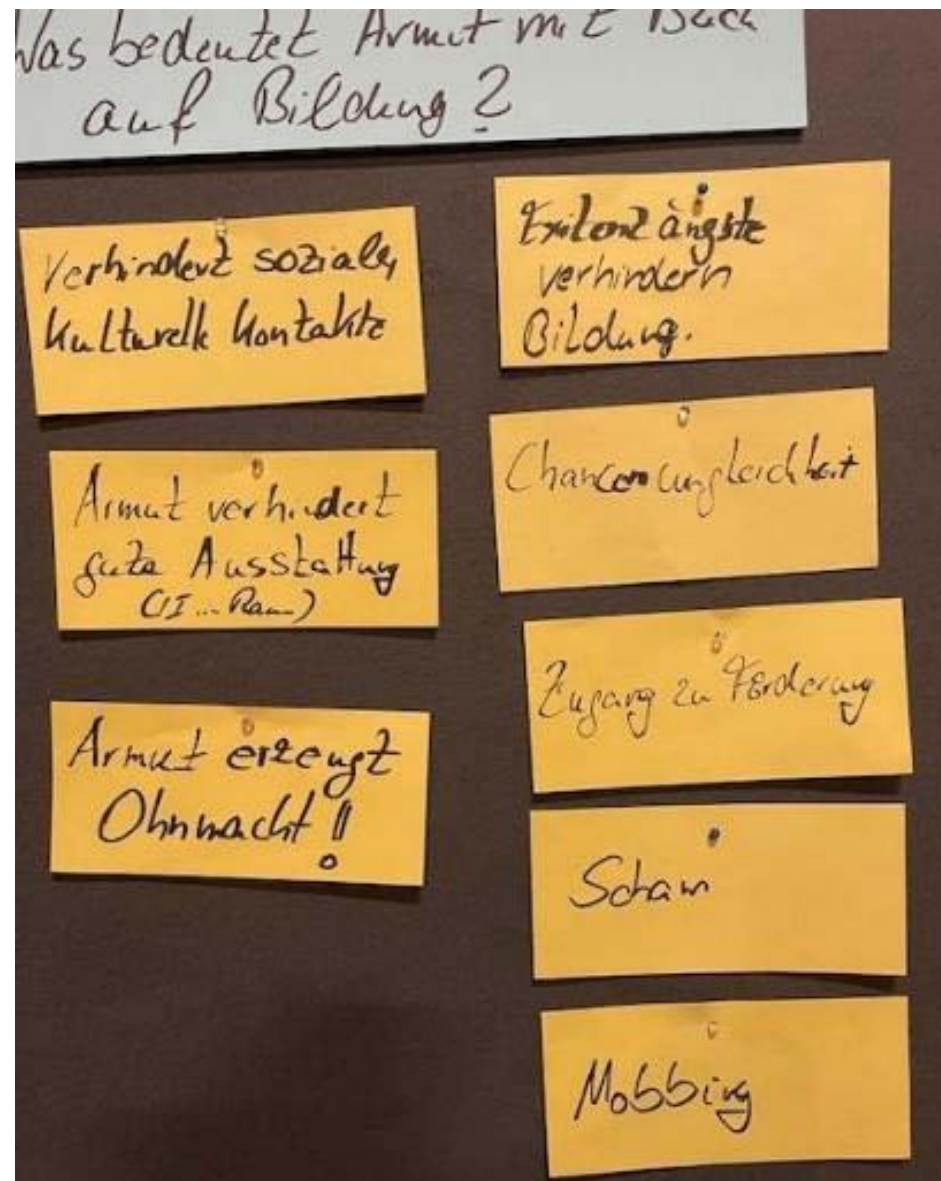 Was bedeutet Armut mit
auf Bildung?
Verhindert soziale,
kulturelle Kontakte
Armut verhindert
gute Ausstattung
Armut erzeugt
Ohnmacht!!
Exitenzängste
verhindern
Bildung.
Chancenungleichheit
Zugang zu Förderung
Scham
Mobbing